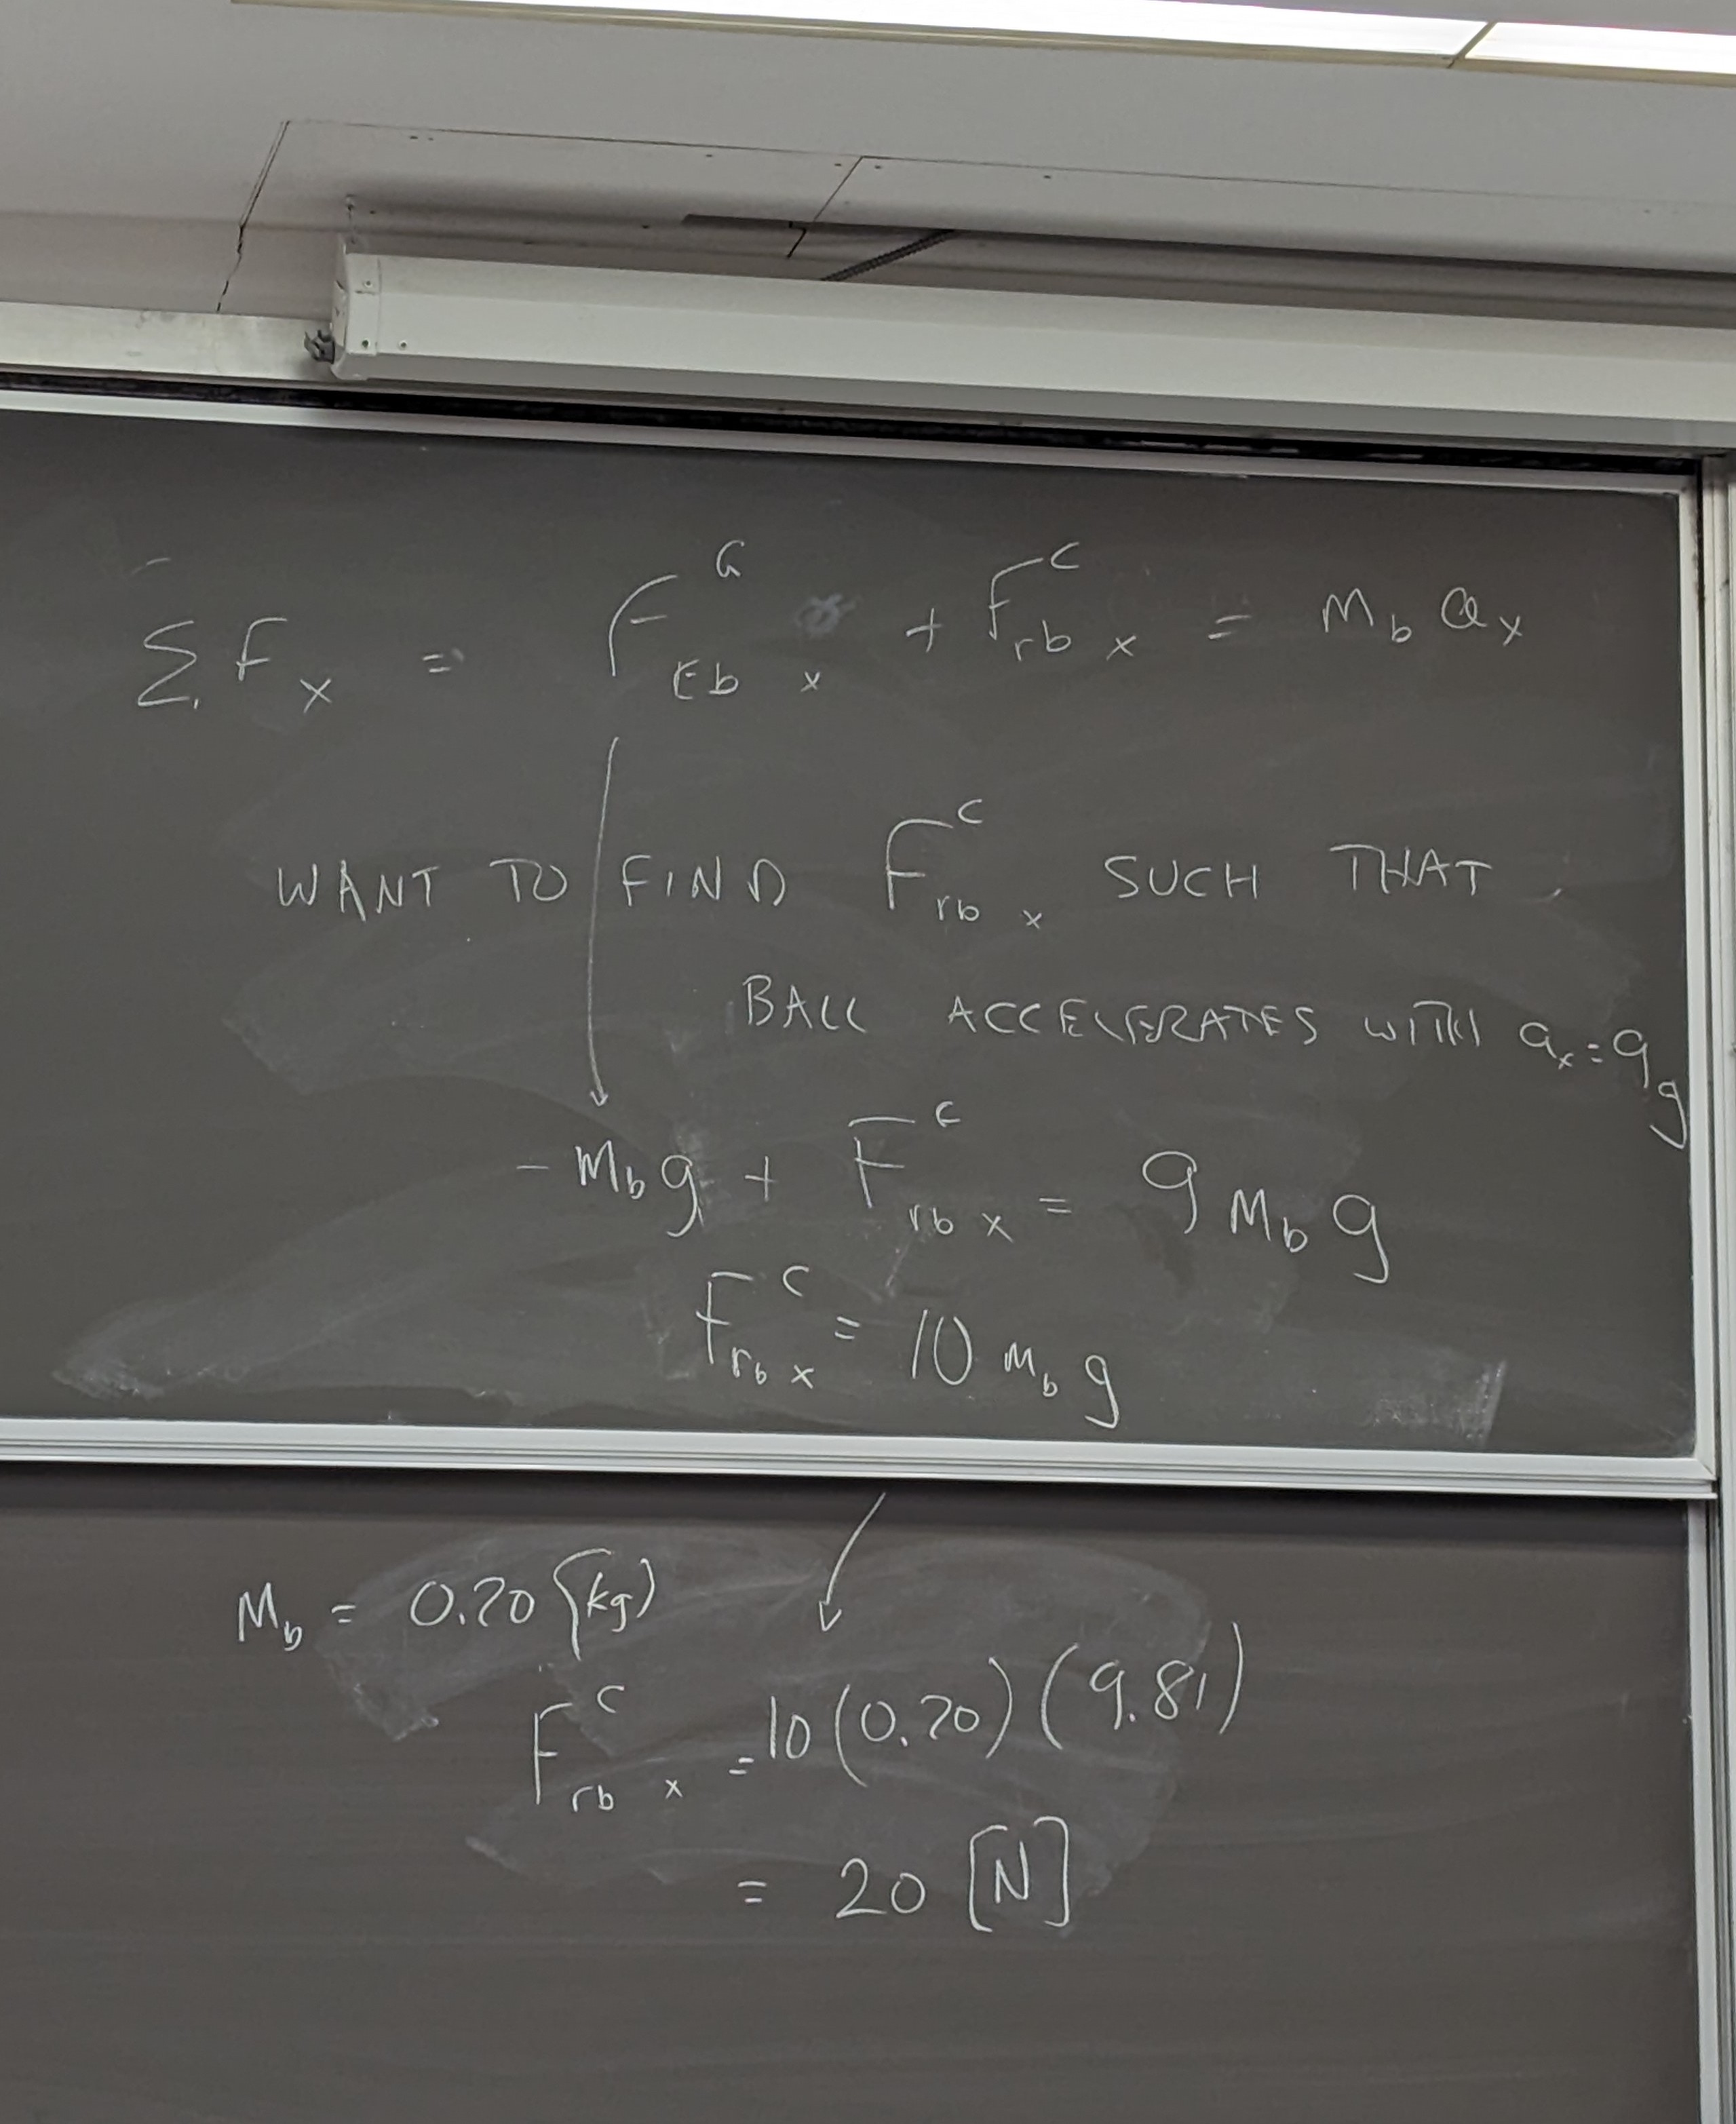 Σ F_x = F^G_{Eb x} + F^C_{rb x} = m_b a_x
WANT TO FIND F^C_{rb x} SUCH THAT
BALL ACCELERATES WITH a_x = 9g
- m_b g + F^C_{rb x} = 9 m_b g
F^C_{rb x} = 10 m_b g
m_b = 0.20 (kg)
F^C_{rb x} = 10 (0.20) (9.81)
= 20 [N]